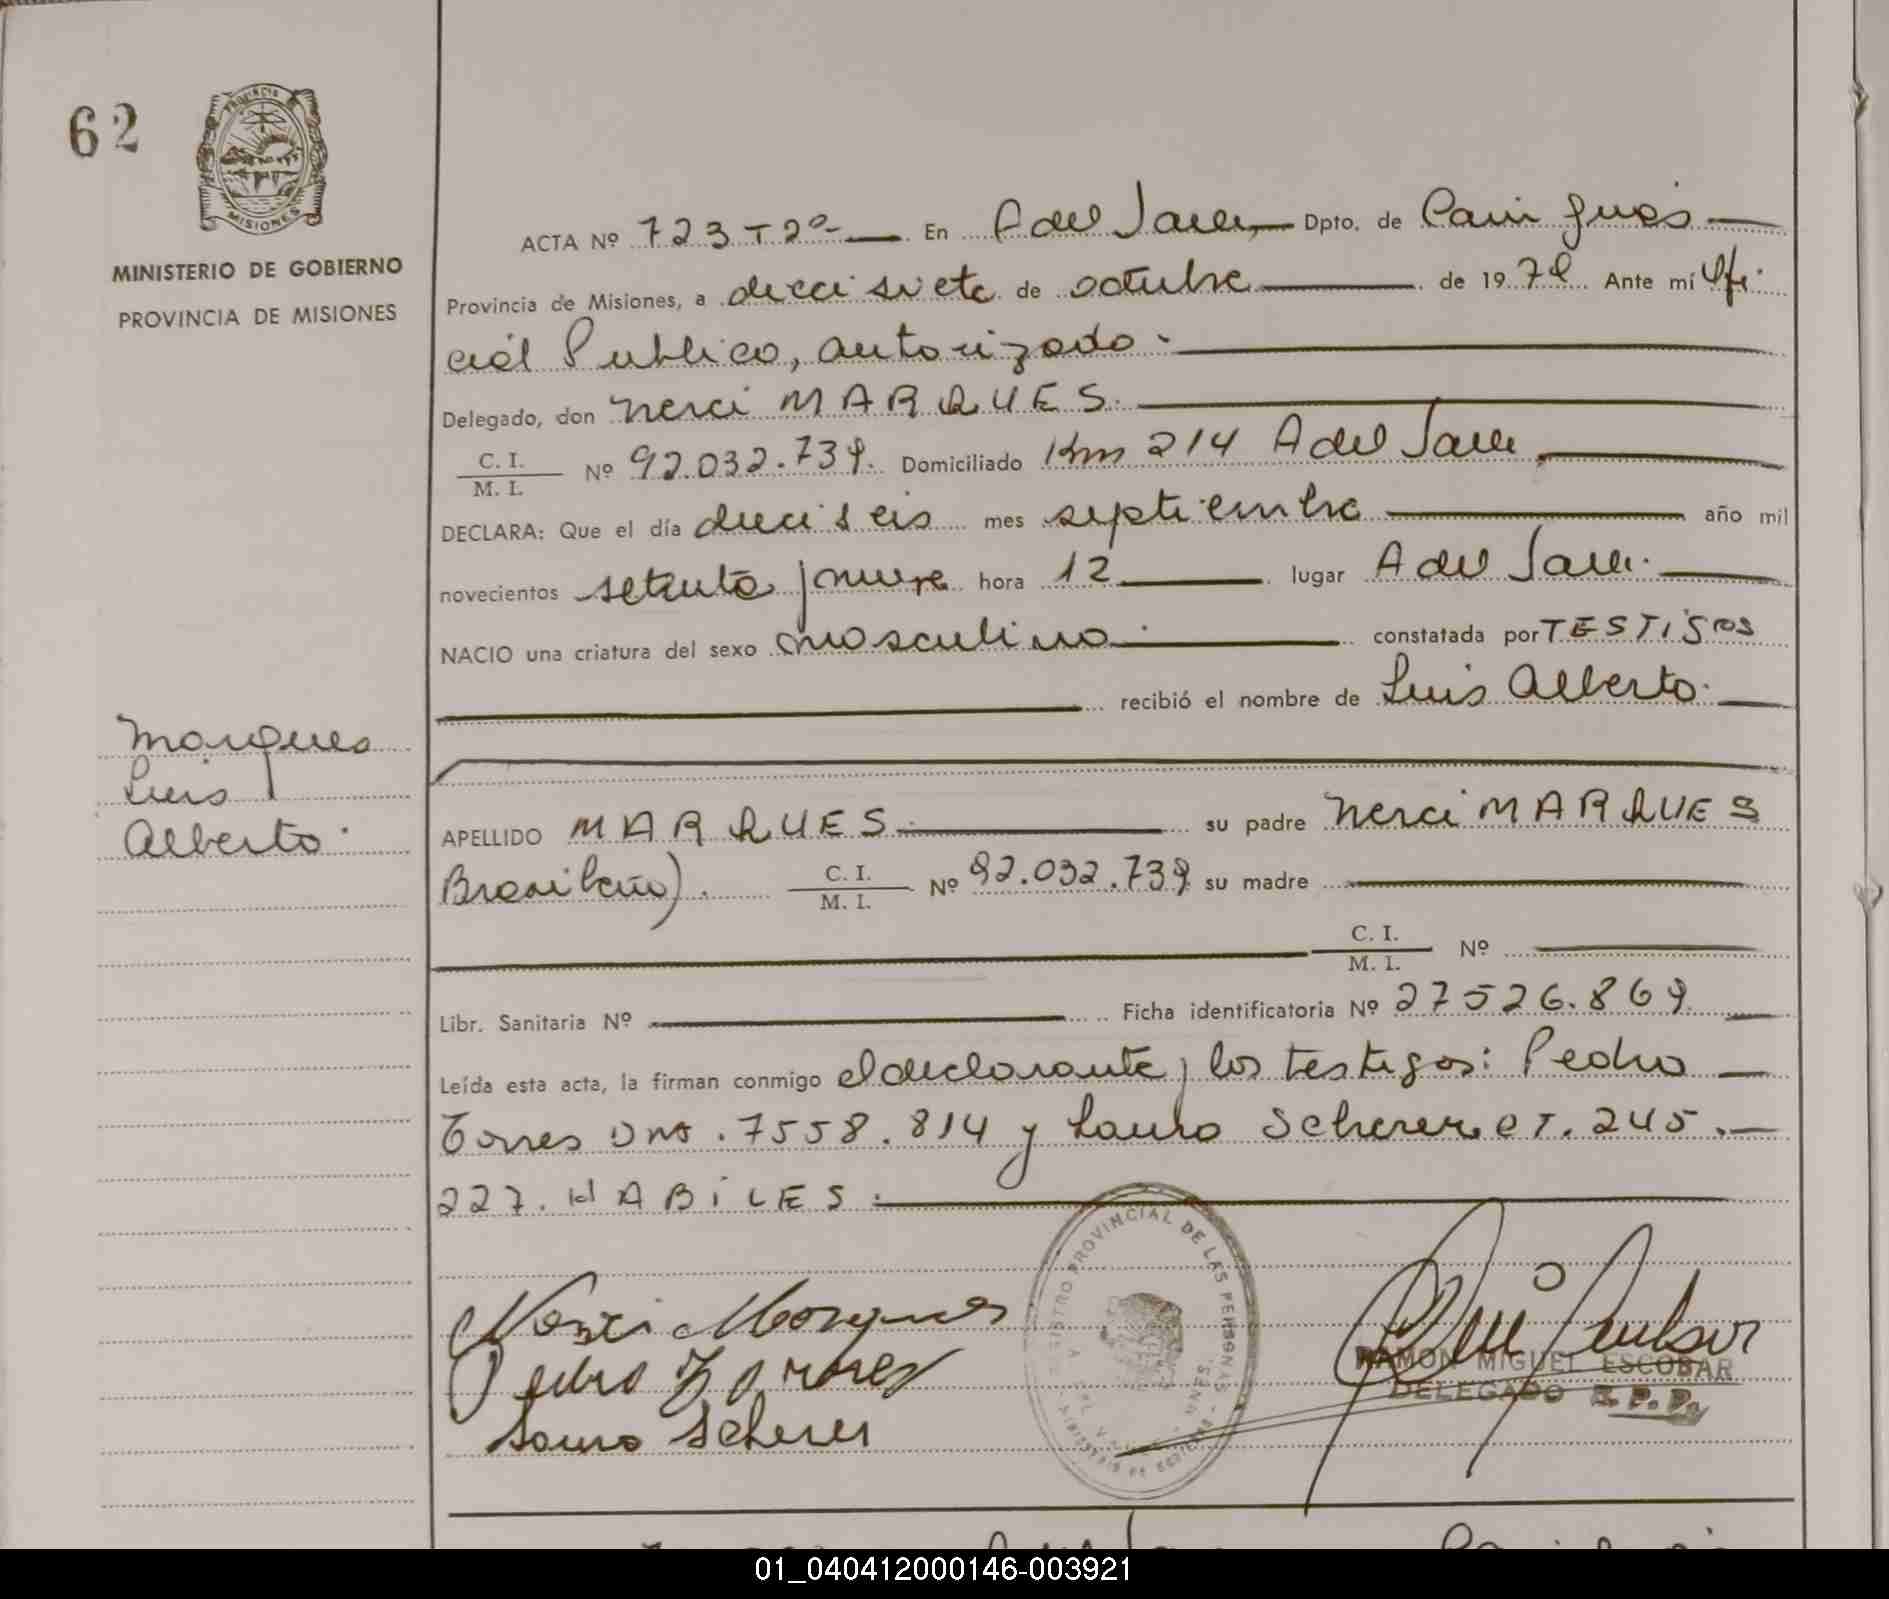 62
PROVINCIA
MISIONES
MINISTERIO DE GOBIERNO
PROVINCIA DE MISIONES
ACTA Nº 723 T 2º En A del Valle Dpto. de Cainguás
Provincia de Misiones, a diecisiete de octubre de 1979 Ante mí Ofi
cial Publico, autorizado.
Delegado, don Nerci MARQUES.
C. I. / M. I. Nº 92.032.739. Domiciliado Km 214 A del Valle
DECLARA: Que el día dieciseis mes septiembre año mil
novecientos setenta y nueve hora 12 lugar A del Valle.
NACIO una criatura del sexo masculino. constatada por TESTIGOS
recibió el nombre de Luis Alberto.
Marques
Luis
Alberto.
APELLIDO MARQUES su padre Nerci MARQUES
Brasileño). C. I. / M. I. Nº 92.032.739 su madre
C. I. / M. I. Nº
Libr. Sanitaria Nº Ficha identificatoria Nº 27526.869.
Leída esta acta, la firman conmigo el declarante y los testigos: Pedro
Torres DNI. 7558.814 y Lauro Scherer CI. 245.
227. HABILES.
REGISTRO PROVINCIAL DE LAS PERSONAS
Nerci Marques
Pedro Torres
Lauro Scherer
RAMON MIGUEL ESCOBAR
DELEGADO R.P.P.
01_040412000146-003921